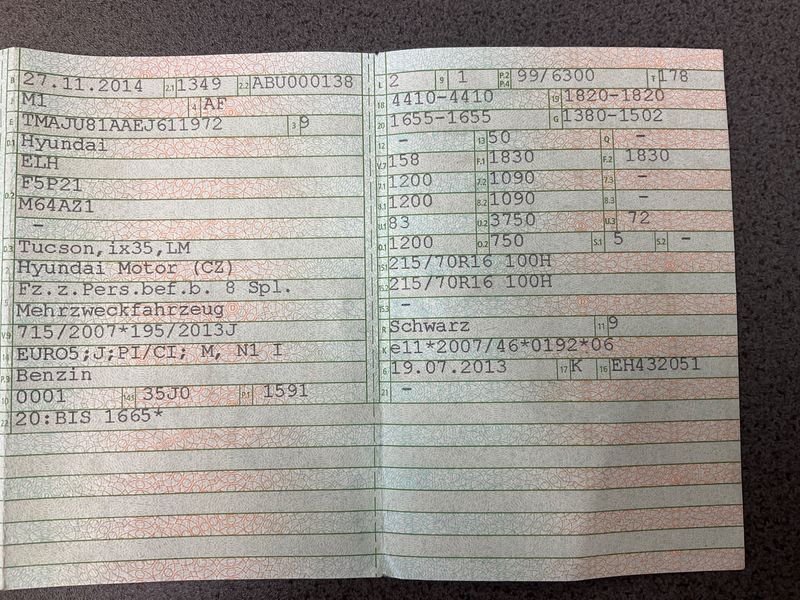 B 27.11.2014 2.1 1349 2.2 ABU000138
J M1 4 AF
E TMAJU81AAEJ611972 3 9
D.1 Hyundai
ELH
F5P21
D.2 M64AZ1
-
D.3 Tucson,ix35,LM
2 Hyundai Motor (CZ)
Fz.z.Pers.bef.b. 8 Spl.
5 Mehrzweckfahrzeug
V.9 715/2007*195/2013J
14 EURO5;J;PI/CI; M, N1 I
P.3 Benzin
10 0001 14.1 35J0 P.1 1591
22 20:BIS 1665*
L 2 9 1 P.2 P.4 99/6300 T 178
18 4410-4410 19 1820-1820
20 1655-1655 G 1380-1502
12 - 13 50 Q -
V.7 158 F.1 1830 F.2 1830
7.1 1200 7.2 1090 7.3 -
8.1 1200 8.2 1090 8.3 -
U.1 83 U.2 3750 U.3 72
O.1 1200 O.2 750 S.1 5 S.2 -
15.1 215/70R16 100H
15.2 215/70R16 100H
15.3 -
R Schwarz 11 9
K e11*2007/46*0192*06
6 19.07.2013 17 K 16 EH432051
21 -